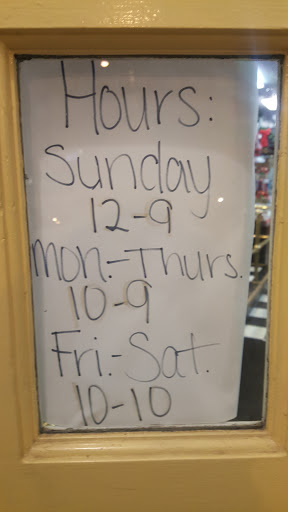 Hours:
Sunday
12-9
Mon.-Thurs.
10-9
Fri.-Sat.
10-10